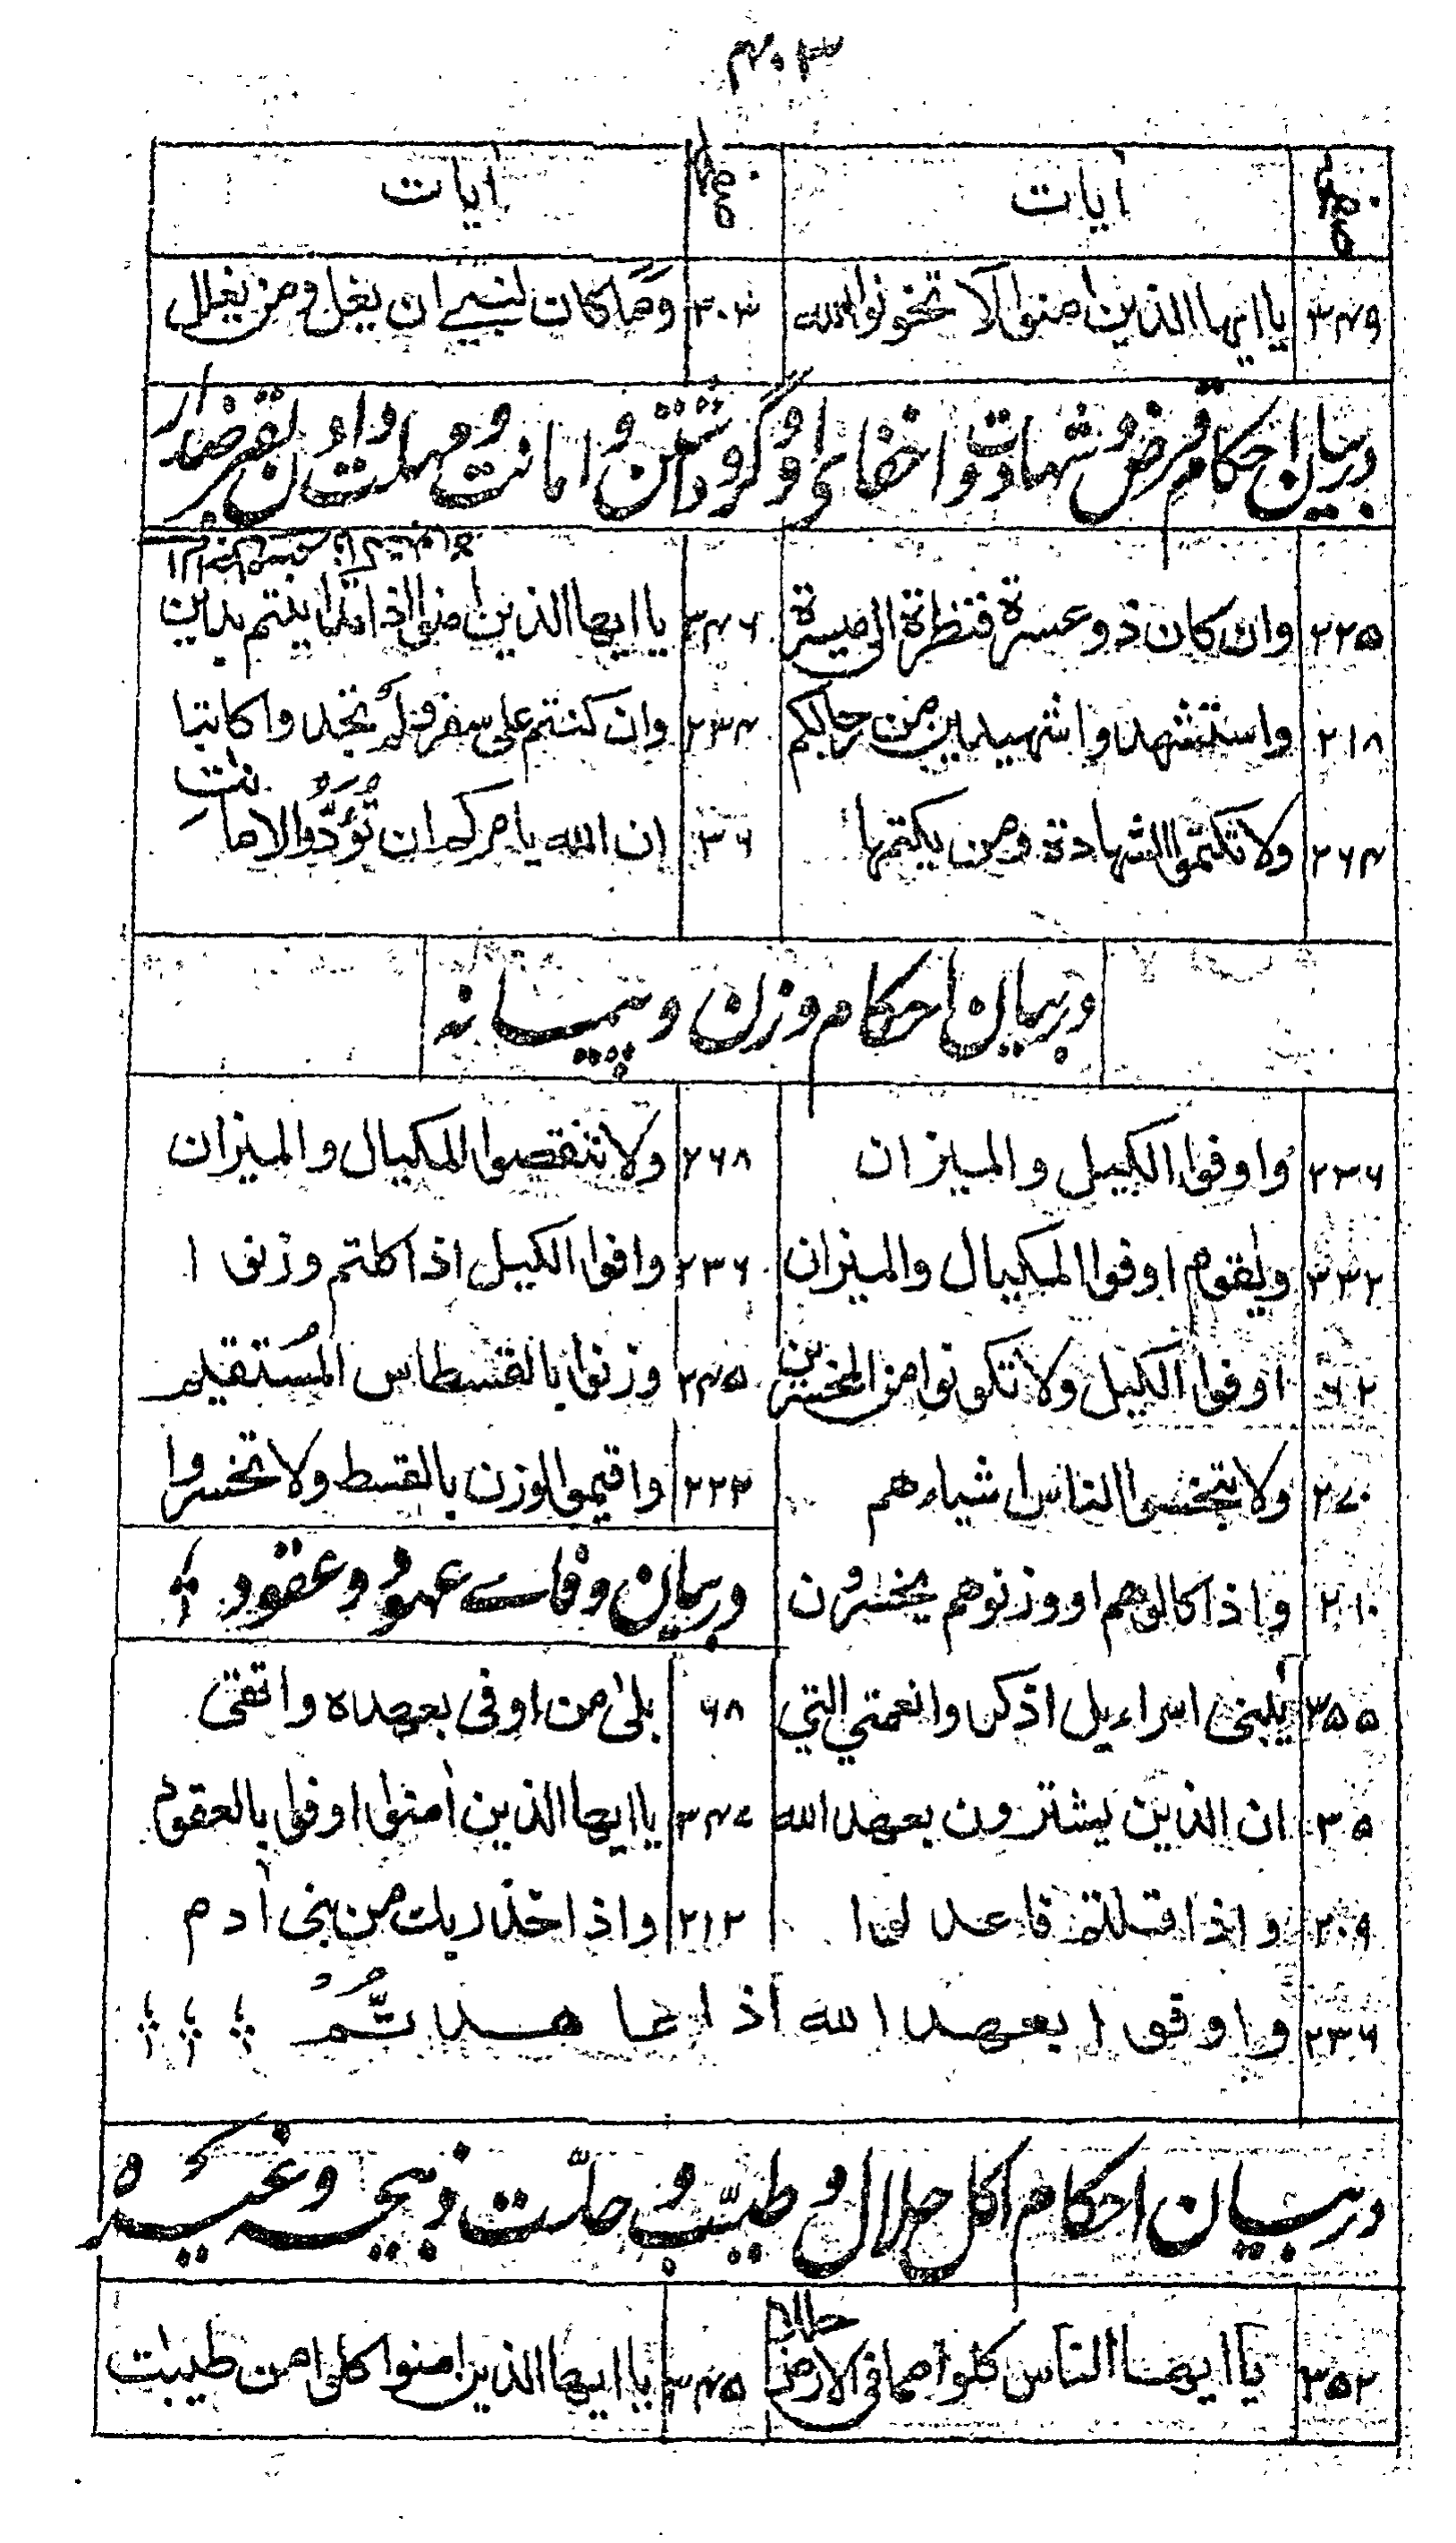 ۴۰۳
آیات صفحه آیات صفحه
۳۴۹ یا ایها الذین امنوا لا تخونوا الله ۳۰۴ وما کان لنبی ان یغل و من یغلل
در بیان احکام قرض و شهادت و اخفای او و گرو داشتن و امانت و مهلت دادن بقرضدار
۲۲۵ وان کان ذو عسرة فنظرة الی میسرة ۳۴۶ یا ایها الذین امنوا اذا تداینتم بدین
۲۱۸ واستشهدوا شهیدین من رجالکم ۲۳۴ وان کنتم علی سفر فلم تجدوا کاتبا
۲۶۴ ولا تکتموا الشهادة ومن یکتمها ۳۶ ان الله یامرکم ان تُؤدُّوا الامانتِ
در بیان احکام وزن و پیمانه
۲۳۶ واوفوا الکیل والمیزان ۲۶۸ ولا تنقصوا المکیال والمیزان
۳۳۲ ویٰقوم اوفوا المکیال والمیزان ۲۳۶ وافوا الکیل اذا کلتم وزنوا
۶۲ اوفوا الکیل ولا تکونوا من المخسرین ۲۴۵ وزنوا بالقسطاس المُستقیم
۲۷۰ ولا تبخسوا الناس اشیاءهم ۲۲۳ واقیموا الوزن بالقسط ولا تخسروا
۲۱۰ واذا کالوهم او وزنوهم یخسرون در بیان وفاے عهود و عقود
۳۵۵ یٰبنی اسراءیل اذکروا نعمتی التی ۶۸ بلیٰ من اوفی بعهده واتقیٰ
۳۵ ان الذین یشترون بعهد الله ۳۴۷ یا ایها الذین اٰمنوا اوفوا بالعقود
۲۰۹ واذا قلتم فاعدلوا ۲۱۲ واذ اخذ ربک من بنی اٰدم
۲۳۶ واوفوا بعهد الله اذا عاهدتُّم
در بیان احکام اکل حلال و طیّب و حلّت ذبیحه و غیره
۳۵۲ یٰا ایها الناس کلوا مما فی الارض حلالا ۳۴۵ یا ایها الذین امنوا کلوا من طیبٰت